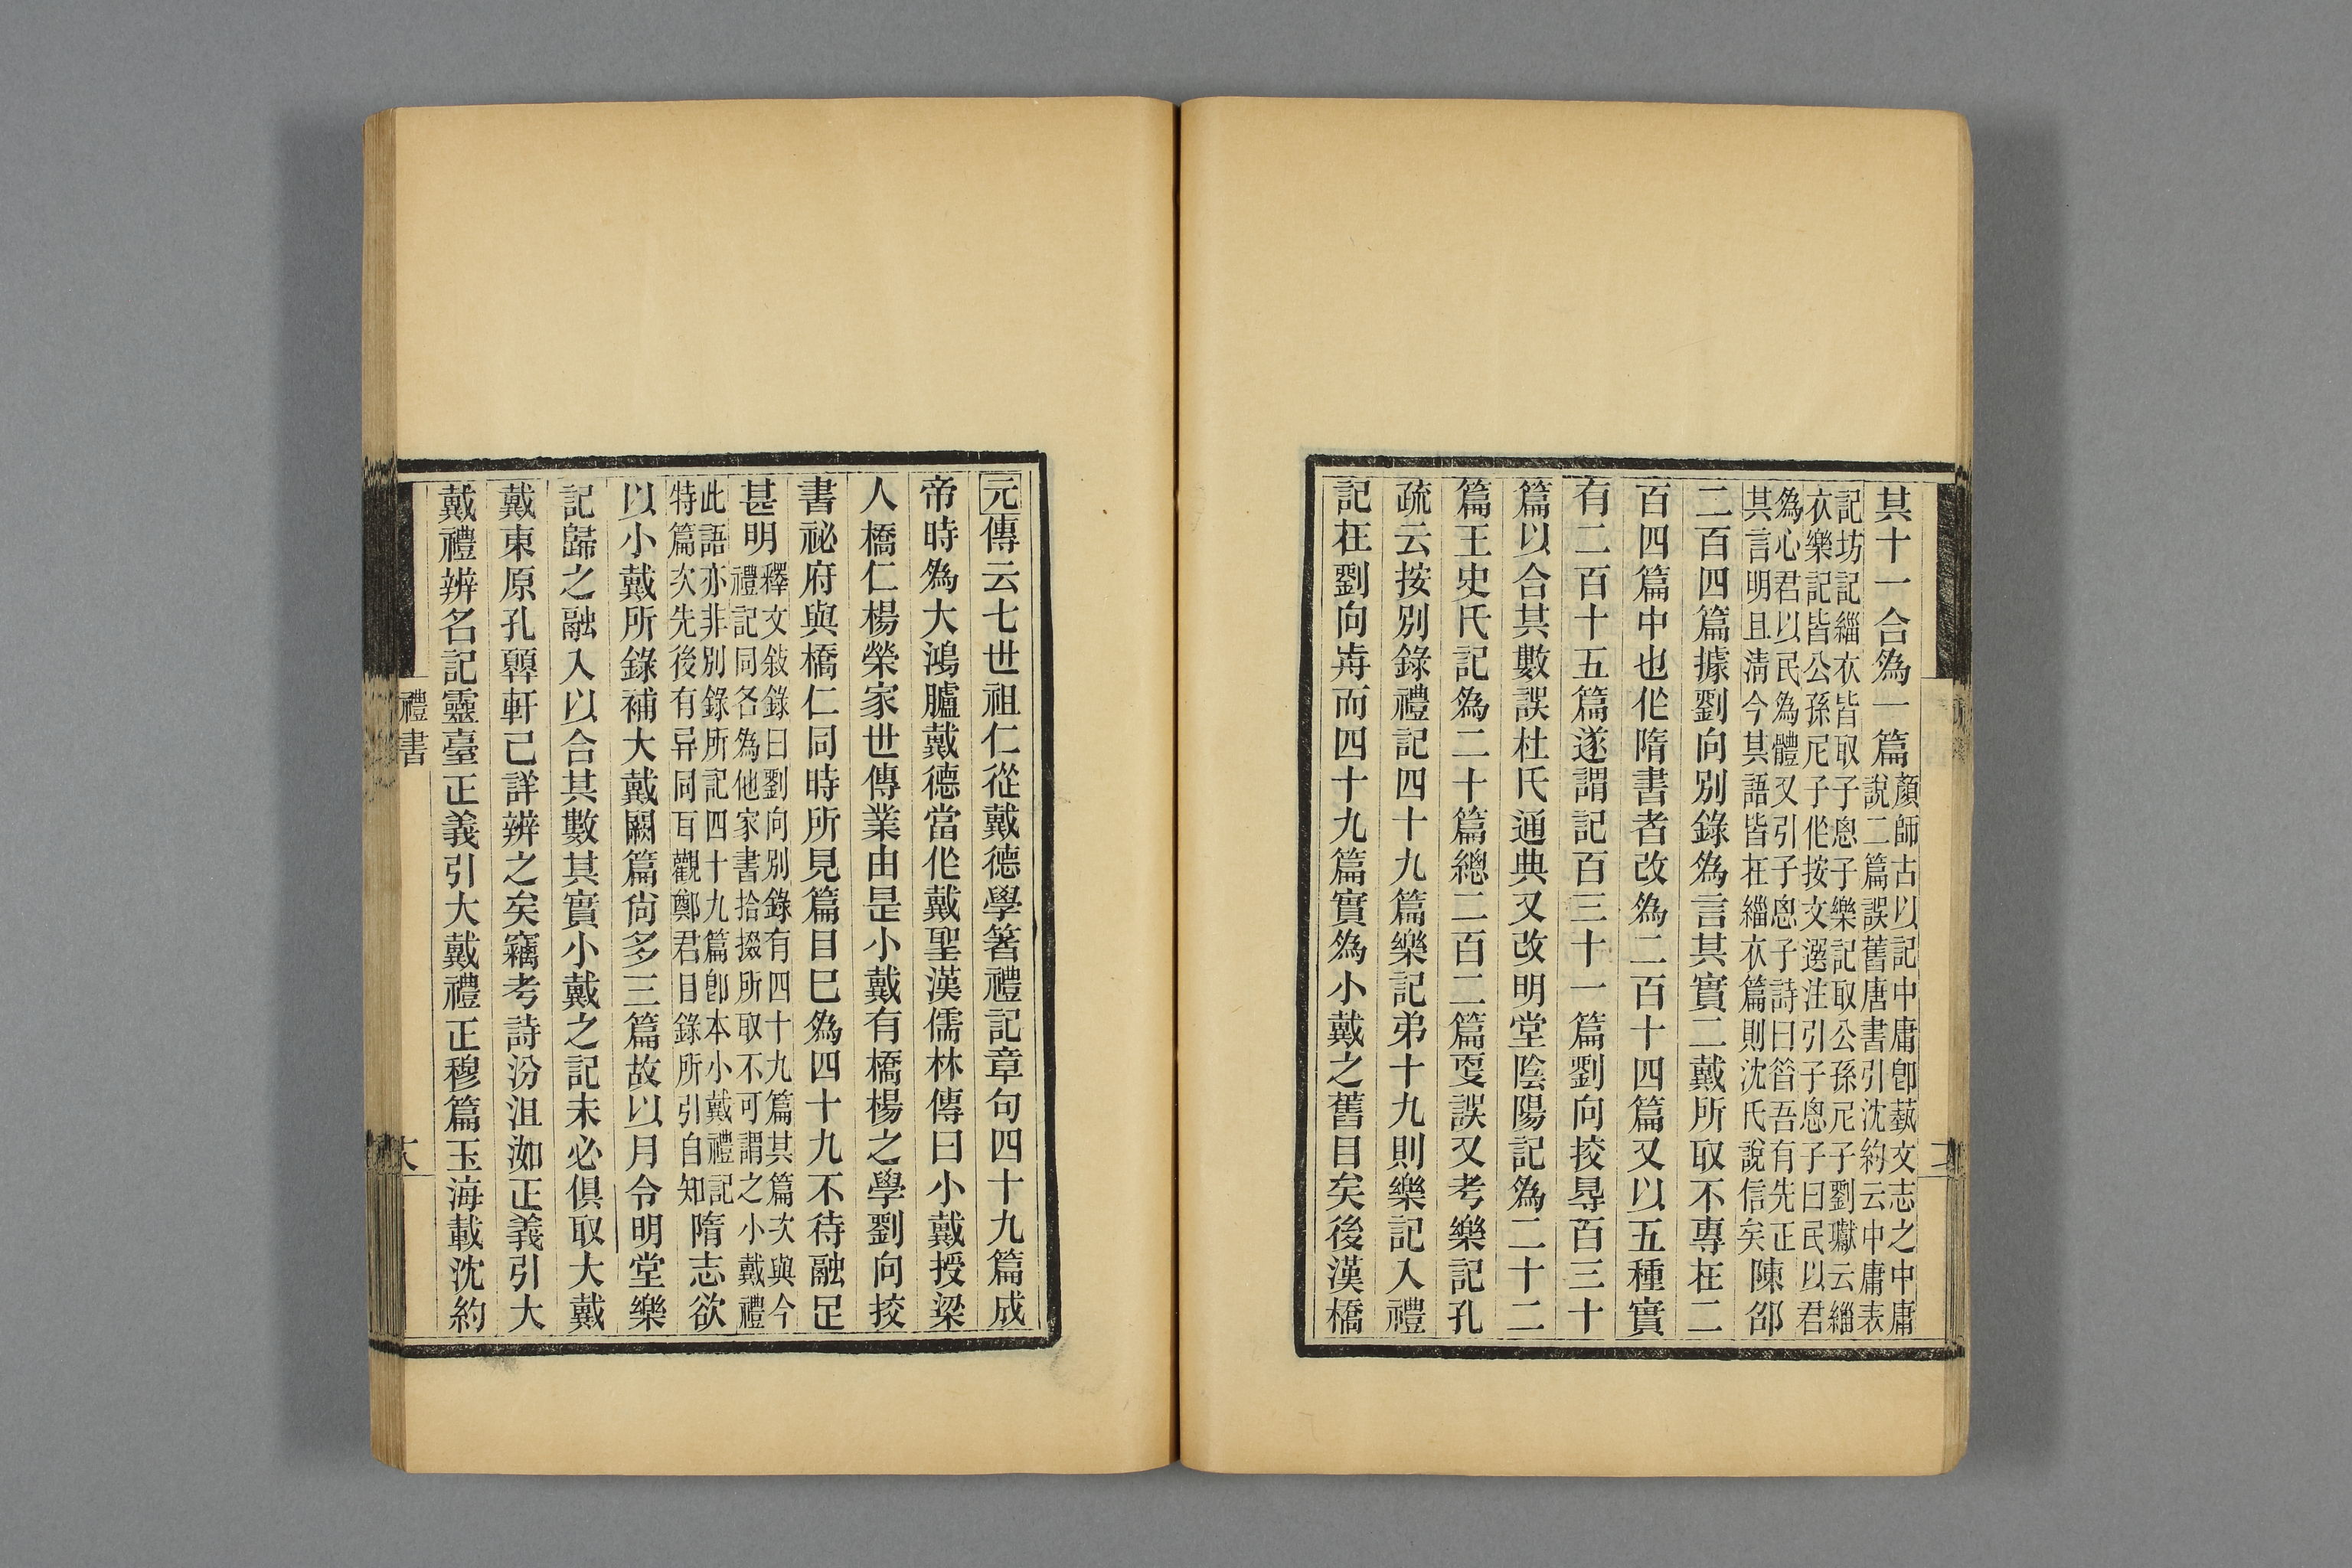 其十一合為一篇顏師古以記中庸卽藝文志之中庸
說二篇誤舊唐書引沈約云中庸表
記坊記緇衣皆取子思子樂記取公孫尼子劉瓛云緇
衣樂記皆公孫尼子作按文選注引子思子曰民以君
為心君以民為體又引子思子詩曰昔吾有先正
其言明且淸今其語皆在緇衣篇則沈氏說信矣陳邵
二百四篇據劉向別錄為言其實二戴所取不專在二
百四篇中也作隋書者改為二百十四篇又以五種實
有二百十五篇遂謂記百三十一篇劉向挍㝵百三十
篇以合其數誤杜氏通典又改明堂陰陽記為二十二
篇王史氏記為二十篇總二百二篇叓誤又考樂記孔
疏云按別錄禮記四十九篇樂記弟十九則樂記入禮
記在劉向歬而四十九篇實為小戴之舊目矣後漢橋
元傳云七世祖仁從戴德學箸禮記章句四十九篇成
帝時為大鴻臚戴德當作戴聖漢儒林傳曰小戴授梁
人橋仁楊榮家世傳業由是小戴有橋楊之學劉向挍
書祕府與橋仁同時所見篇目已為四十九不待融足
甚明釋文敍錄曰劉向別錄有四十九篇其篇次與今
禮記同名為他家書拾掇所取不可謂之小戴禮
此語亦非別錄所記四十九篇卽本小戴禮記
特篇次先後有异同百觀鄭君目錄所引自知隋志欲
以小戴所錄補大戴闕篇尙多三篇故以月令明堂樂
記歸之融入以合其數其實小戴之記未必俱取大戴
戴東原孔顨軒已詳辨之矣竊考詩汾沮洳正義引大
戴禮辨名記靈臺正義引大戴禮正穆篇玉海載沈約
禮書